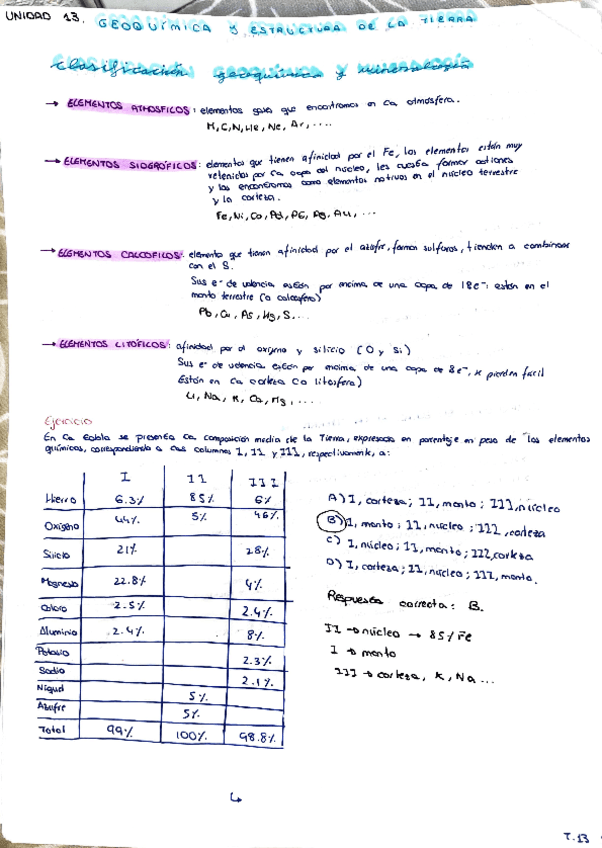 UNIDAD 13. GEOQUÍMICA Y ESTRUCTURA DE LA TIERRA
Clasificación geoquímica y mineralogía
→ ELEMENTOS ATMÓSFICOS: elementos gases que encontramos en la atmósfera.
H, C, N, He, Ne, Ar, ....
→ ELEMENTOS SIDERÓFICOS: elementos que tienen afinidad por el Fe, los elementos están muy
retenidos por la capa del núcleo, les cuesta formar cationes
y los encontramos como elementos nativos en el núcleo terrestre
y la corteza.
Fe, Ni, Co, Pd, Pt, Ag, Au, ...
→ ELEMENTOS CALCOFILOS: elemento que tienen afinidad por el azufre, forman sulfuros, tienden a combinarse
con el S.
Sus e- de valencia están por encima de una capa de 18e-: están en el
manto terrestre (o calcosfera)
Pb, Cu, As, Hg, S...
→ ELEMENTOS LITÓFICOS: afinidad por el oxígeno y silicio (O y Si)
Sus e- de valencia están por encima de una capa de 8e-, se pierden facil
Están en la corteza (o litosfera)
Li, Na, K, Ca, Mg, ....
Ejercicio
En la tabla se presenta la composición media de la Tierra, expresada en porcentaje en peso de los elementos
químicos, correspondiendo a las columnas I, II y III, respectivamente, a:
I II III
Hierro 6.3% 85% 6%
Oxígeno 44% 5% 46%
Silicio 21% 28%
Magnesio 22.8% 4%
Calcio 2.5% 2.4%
Aluminio 2.4% 8%
Potasio 2.3%
Sodio 2.1%
Níquel 5%
Azufre 5%
Total 99% 100% 98.8%
A) I, corteza; II, manto; III, núcleo
B) I, manto; II, núcleo; III, corteza
C) I, núcleo; II, manto; III, corteza
D) I, corteza; II, núcleo; III, manto.
Respuesta correcta: B.
II → núcleo → 85% Fe
I → manto
III → corteza, K, Na...
T.13